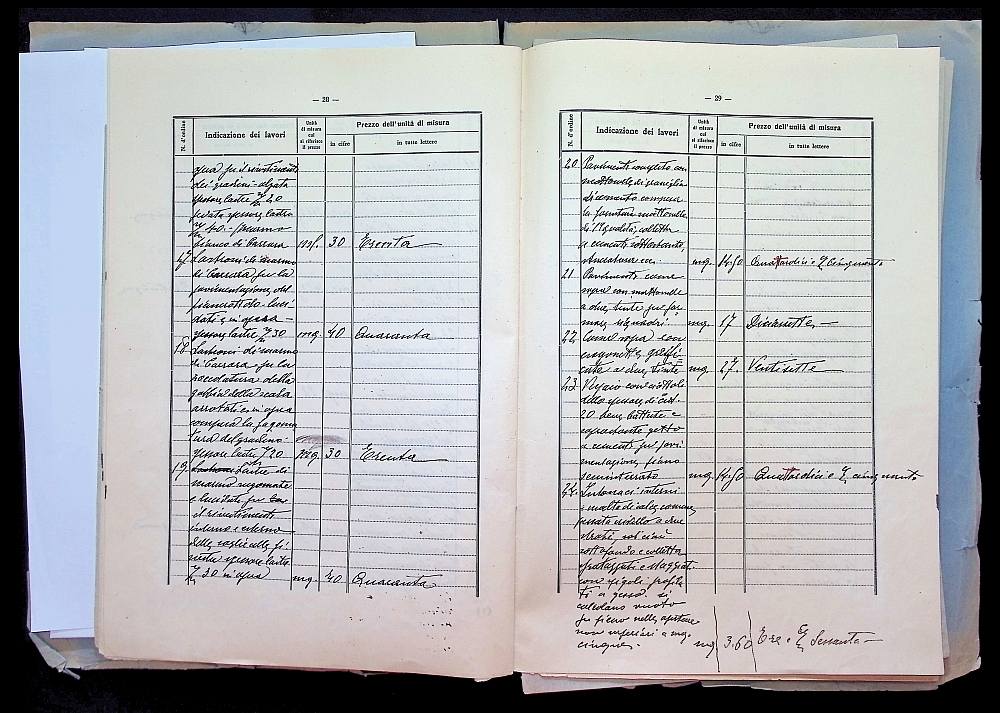 — 28 —
N. d'ordine
Indicazione dei lavori
Unità di misura cui si riferisce il prezzo
Prezzo dell'unità di misura
in cifre
in tutte lettere
qua per il rivestimento
dei gradini - alzata
spessore lastre 20
pedata spessore lastre
40. - marmo
bianco di Carrara 30 Trenta
17 Lastroni di marmo
di Carrara per la
pavimentazione del
pianerottolo luci-
dati e in opera -
spessore lastre 30 mq. 40 Quaranta
18. Lastroni di marmo
di Carrara per la
zoccolatura della
gabbia della scala
arrotati e in opera
compresa la sagoma
tura del gradino -
spessore lastre 20 mq. 30 Trenta
19. Lastre di
marmo sagomate
e lucidate per
il rivestimento
interno e esterno
delle soglie delle fi-
nestre spessore lastre
30 in opera mq. 40 Quaranta
— 29 —
N. d'ordine
Indicazione dei lavori
Unità di misura cui si riferisce il prezzo
Prezzo dell'unità di misura
in cifre
in tutte lettere
20 Pavimento completo con
mattonelle di graniglia
di cemento compresa
la fornitura mattonelle
di 1ª qualità, colletta
a cemento sottostante,
stuccatura ecc. mq. 14.50 Quattordici e cinquanta
21 Pavimento come
sopra con mattonelle
a due tinte per for-
mare riquadri. mq. 17 Diciassette
22. Come sopra con
a due tinte mq 27. Ventisette
23. Vespaio con ciottoli
dello spessore di cent.
20 bene battuto e
soprastante getto
a cemento per pavi-
mentazione piano
seminterrato mq 14.50 Quattordici e cinquanta
24. Intonaci interni
a malta di calce comune
passata al setaccio a due
strati, col cui
sottofondo e colletta
e staggiati
con spigoli profila-
ti a gesso. si
calcolano vuoto
per pieno nelle aperture
non superiori a mq.
cinque. mq 3.60 Tre e Sessanta